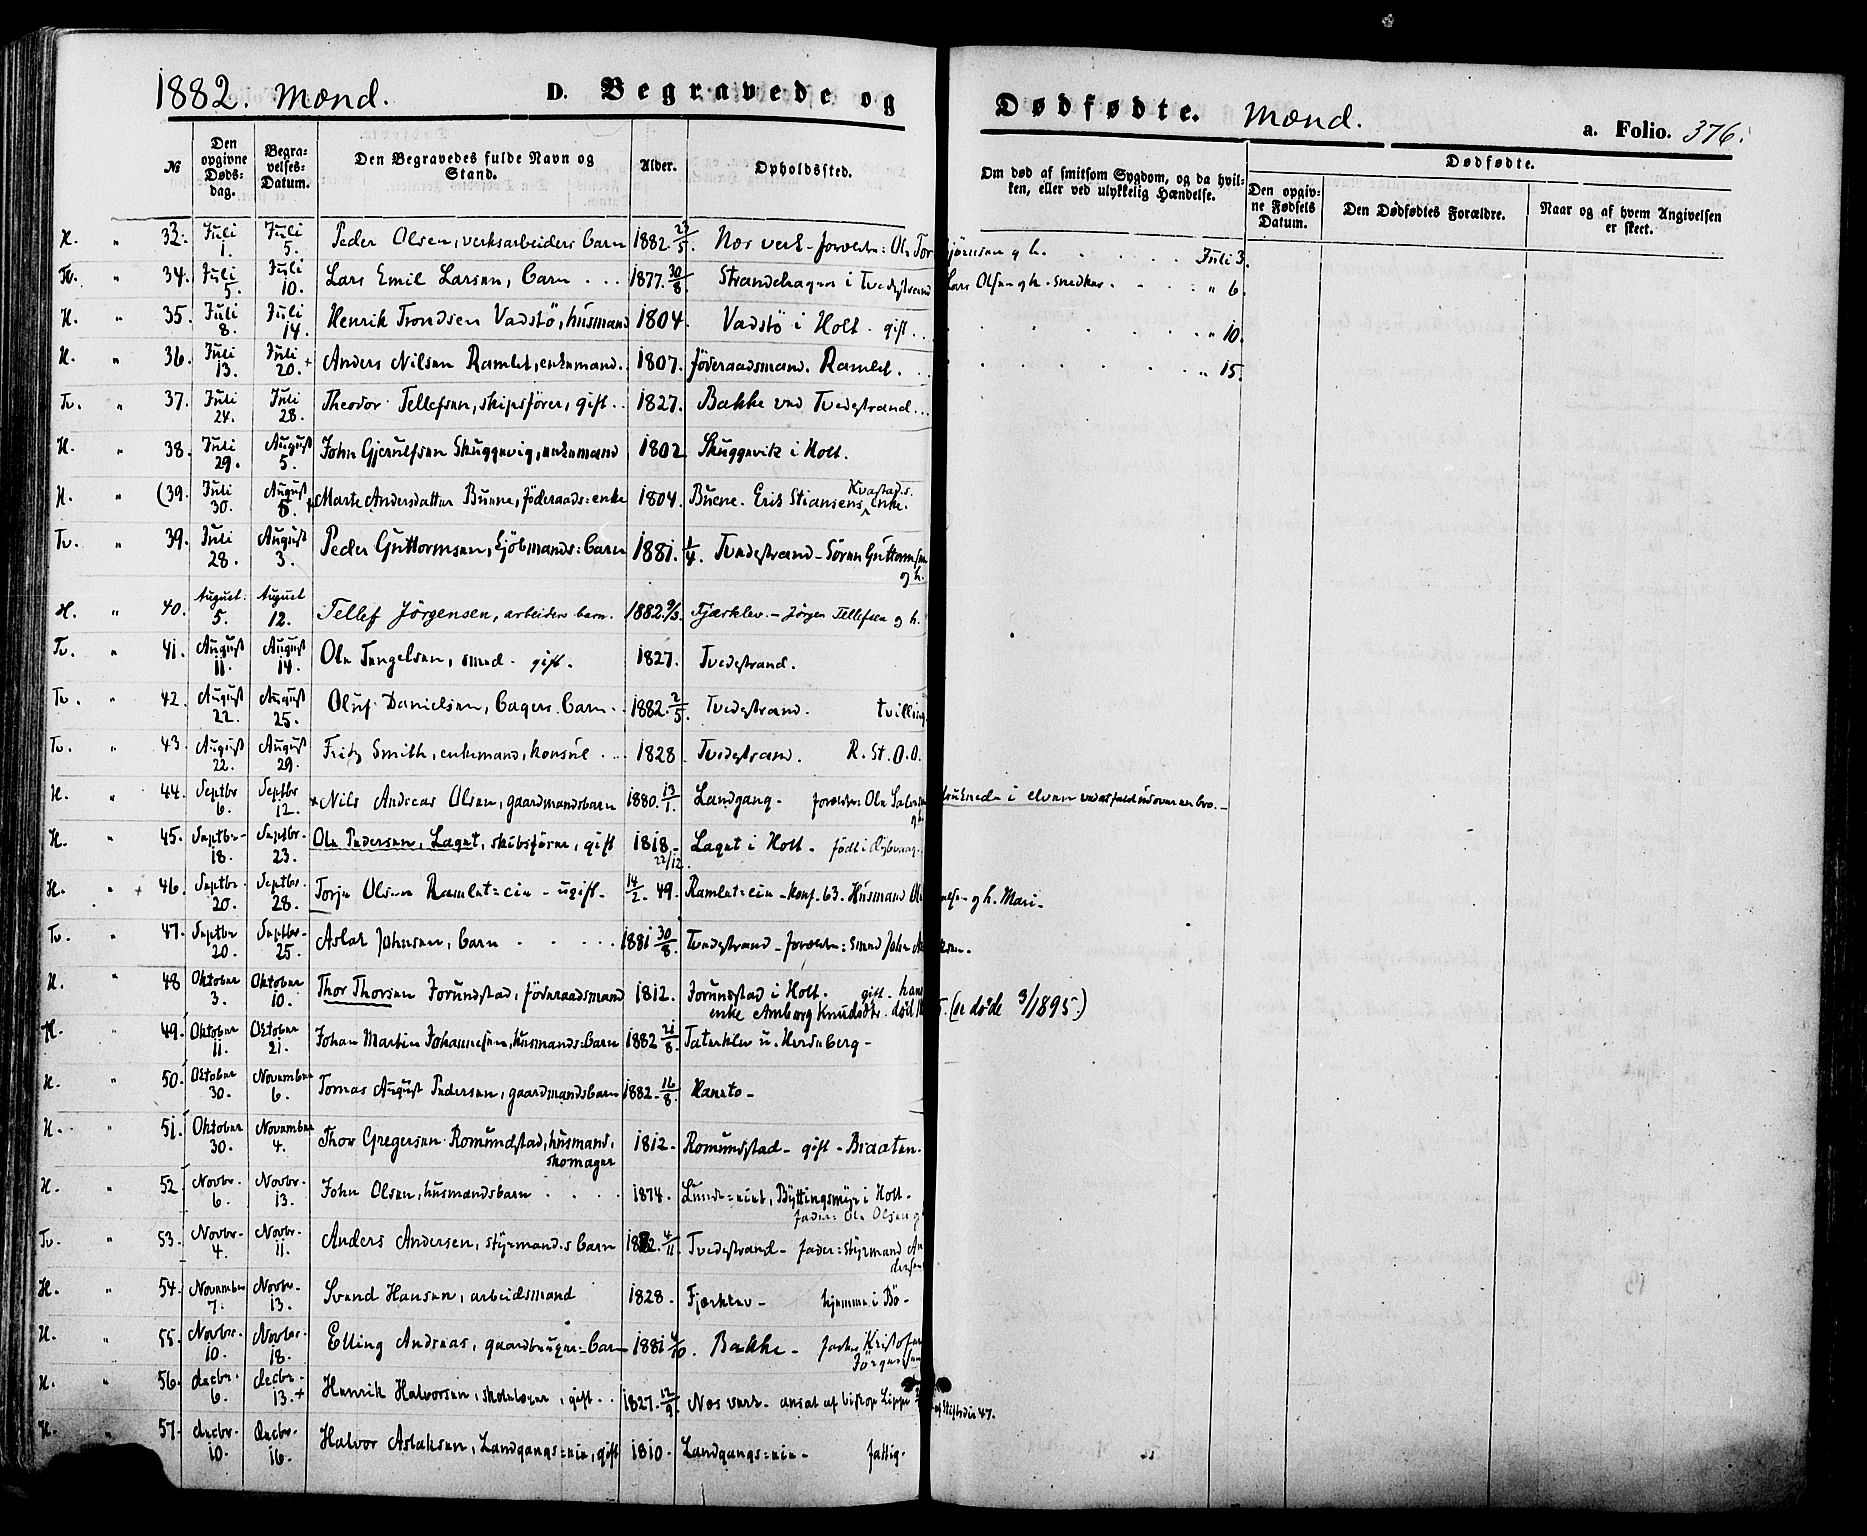 1882. Mænd. D. Begravede og Dødfødte. Mænd. a. Folio. 376.
№ Den opgivne Døds-dag. Begra-velses-Datum. Den Begravedes fulde Navn og Stand. Alder. Opholdssted. Om død af smitsom Sygdom, og da hvil-ken, eller ved ulykkelig Hændelse. Dødfødte. Den opgiv-ne Fødsels Datum. Den Dødfødtes Forældre. Naar og af hvem Angivelsen er skeet.
H. " 33. Juli 1. Juli 5. Peder Olsen, verksarbeiders barn 1882. 29/5. Nes verk - forældre: Ole Torbjørnsen og h. Juli 3.
Tv. " 34. Juli 5. Juli 10. Lars Emil Larsen, barn 1877. 30/8. Strandehagen i Tvedestrand Lars Olsen og h. snedker. " 6.
H. " 35. Juli 8. Juli 14. Henrik Trondsen Vadstö, husmand 1804. Vadstö i Holt. gift. " 10.
H. " 36. Juli 13. Juli 20. + Anders Nilsen Ramlet, enkemand. 1807. föderaadsmand. Ramlet. " 15.
Tv. " 37. Juli 24. Juli 28. Theodor Tellefsen, skipsförer, gift 1827. Bakke ved Tvedestrand
H. " 38. Juli 29. August 5. John Gjerulfsen Skuggevig, enkemand 1802 Skuggevik i Holt.
H. " (39. Juli 30. August 5. + Marte Andersdatter Buene, föderaads=enke 1804. Buene. Erik Stiansens Kvastads. enke.
Tv. " 39. Juli 28. August 3. Peder Guttormsen, sjömands=barn 1881. 1/4. Tvedestrand - Sören Guttormsen og h.
H. " 40. August 5. August 12. Tellef Jörgensen, arbeiders barn. 1882. 9/3. Fjærklev. - Jörgen Tellefsen og h.
Tv. " 41. August 11. August 14. Ole Tengelsen, smed. gift. 1827. Tvedestrand.
Tv. " 42. August 22. August 25. Oluf Danielsen, bagers barn 1882. 2/5. Tvedestrand. tvilling
Tv. " 43. August 22. August 29. Fritz Smith, enkemand, konsul 1828 Tvedestrand. R. St. O. O.
H. " 44. Septbr 6. Septbr 12. + Nils Andreas Olsen, gaardmandsbarn 1880. 13/1. Landgang. forældre: Ole druknede i elven ved at falde ud over en bro.
H. " 45. Septbr. 18. Septbr. 23. Ole Pedersen, Laget, skibsförer, gift 1818 22/12. Laget i Holt. född i Dybvaag.
H. " + 46. Septbr. 20. Septbr. 28. Torje Olsen Ramlet=eie - ugift. 14/2. 49. Ramlet=eie - konf. 63. Husmand og h. Mari
Tv. " 47. Septbr 20. Septbr. 25. Aslak Johnsen, barn 1881 30/8. Tvedestrand - forældre: smed John
H. " 48 Oktober 3. Oktober 10. Thor Thorsen Jorundstad, föderaadsmand 1812. Jorundstad i Holt. gift. hans enke Amborg Knudsdtr. död (se döde 3/1895.)
H. " 49. Oktober 11. Oktober 21. Johan Martin Johannesen, husmands=barn 1882 21/8. Taterklev u. Herdeberg
H. " 50. Oktober 30. November 6. Tomas August Pedersen, gaardmandsbarn 1882. 16/8. Raneto
H. " 51. Oktober 30. November 4. Thor Gregersen Romundstad, husmand, skomager 1812. Romundstad - gift - Braaten.
H. " 52. Novbr. 6. Novbr. 13. John Olsen, husmandsbarn 1874. Lunde=eiet, Byttingsmyr i Holt. fader: Ole Olsen og
Tv. " 53. Novbr. 4. Novbr. 11. Anders Andersen, styrmands barn 1882. 4/11. Tvedestrand - fader: styrmand Andersen
H. " 54. November 7. Novbr. 13. Svend Hansen, arbeidsmand 1828. Fjærklev - hjemme i Bö
H. " 55. Novbr. 10. Novbr. 18. Elling Andreas, gaardbruger=barn 1881 4/10. Bakke - fader Kristofer Jörgensen
H. " 56. decbr. 6. decbr. 13. + Henrik Halvorsen, skolelærer, gift 1827. 12/9. Nes verk - ansat af biskop 47.
H. " 57. decbr. 10. decbr. 16. Halvor Aslaksen, Landgangs=eie, gift 1810. Landgangs=eie - fattig.